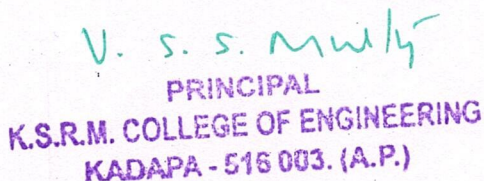 V. S. S. Murthy
PRINCIPAL
K.S.R.M. COLLEGE OF ENGINEERING
KADAPA - 516 003. (A.P.)